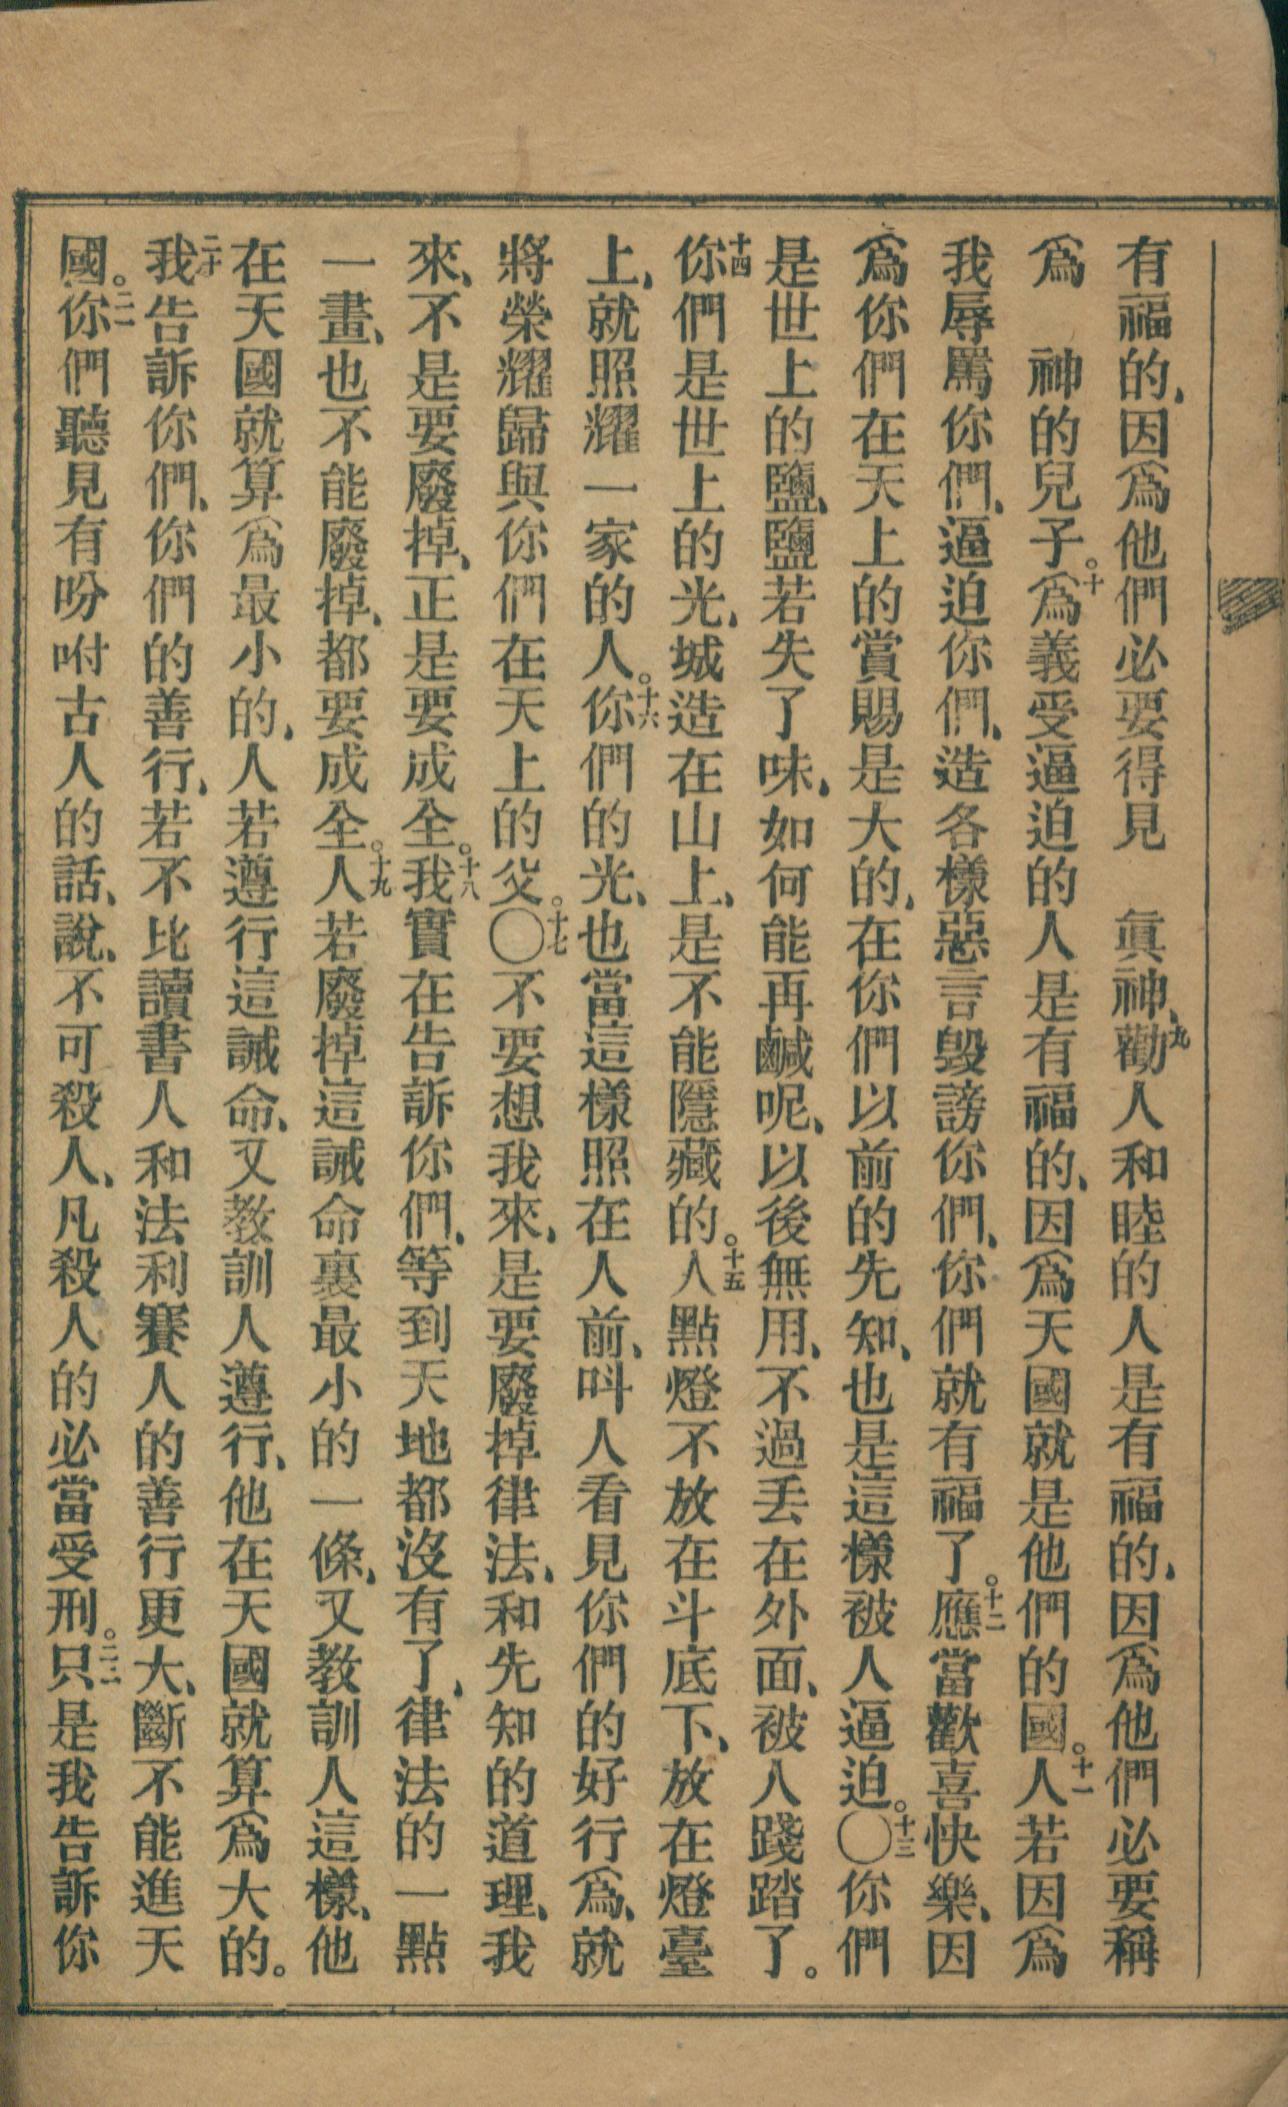 有福的、因爲他們必要得見　眞神、九勸人和睦的人是有福的、因爲他們必要稱
爲　神的兒子。十爲義受逼迫的人是有福的、因爲天國就是他們的國。十一人若因爲
我辱罵你們、逼迫你們、造各樣惡言毀謗你們、你們就有福了。十二應當歡喜快樂、因
爲你們在天上的賞賜是大的、在你們以前的先知、也是這樣被人逼迫。十三〇你們
是世上的鹽、鹽若失了味、如何能再鹹呢、以後無用、不過丟在外面、被人踐踏了。
十四你們是世上的光、城造在山上、是不能隱藏的。十五人點燈不放在斗底下、放在燈臺
上、就照耀一家的人。十六你們的光、也當這樣照在人前、呌人看見你們的好行爲、就
將榮耀歸與你們在天上的父。十七〇不要想我來、是要廢掉律法、和先知的道理、我
來、不是要廢掉、正是要成全。十八我實在告訴你們、等到天地都沒有了、律法的一點
一畫、也不能廢掉、都要成全。十九人若廢掉這誡命裏最小的一條、又教訓人這樣、他
在天國就算爲最小的、人若遵行這誡命、又教訓人遵行、他在天國就算爲大的。
二十我告訴你們、你們的善行、若不比讀書人和法利賽人的善行更大、斷不能進天
國。二一你們聽見有吩咐古人的話、說、不可殺人、凡殺人的必當受刑。二二只是我告訴你